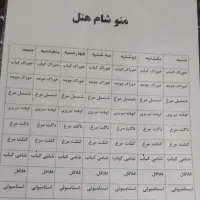 منو شام هتل
شنبه یکشنبه دوشنبه سه شنبه چهارشنبه پنجشنبه جمعه
خوراک کباب خوراک کباب خوراک کباب خوراک کباب خوراک کباب خوراک کباب خوراک کباب
خوراک جوجه خوراک جوجه خوراک جوجه خوراک جوجه خوراک جوجه خوراک جوجه خوراک جوجه
شنسل مرغ شنسل مرغ شنسل مرغ شنسل مرغ شنسل مرغ شنسل مرغ شنسل مرغ
کوفته تبریزی کوفته تبریزی کوفته تبریزی کوفته تبریزی کوفته تبریزی کوفته تبریزی کوفته تبریزی
ناگت مرغ ناگت مرغ ناگت مرغ ناگت مرغ ناگت مرغ ناگت مرغ ناگت مرغ
کتلت مرغ کتلت مرغ کتلت مرغ کتلت مرغ کتلت مرغ کتلت مرغ کتلت مرغ
شامی کباب شامی کباب شامی کباب شامی کباب شامی کباب شامی کباب شامی کباب
فلافل فلافل فلافل فلافل فلافل فلافل فلافل
استامبولی استامبولی استامبولی استامبولی استامبولی استامبولی استامبولی